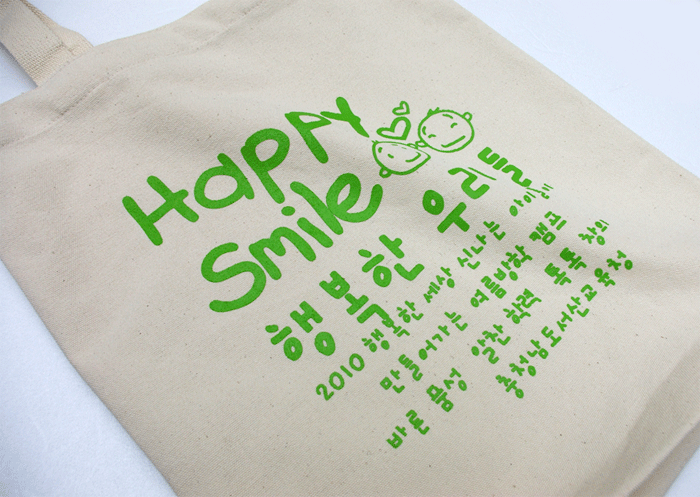 Happy
Smile
행복한 우리들
2010 행복한 세상 신나는 아이들
만들어가는 여름방학 캠프
바른 품성 알찬 학력 톡톡 창의
충청남도서산교육청